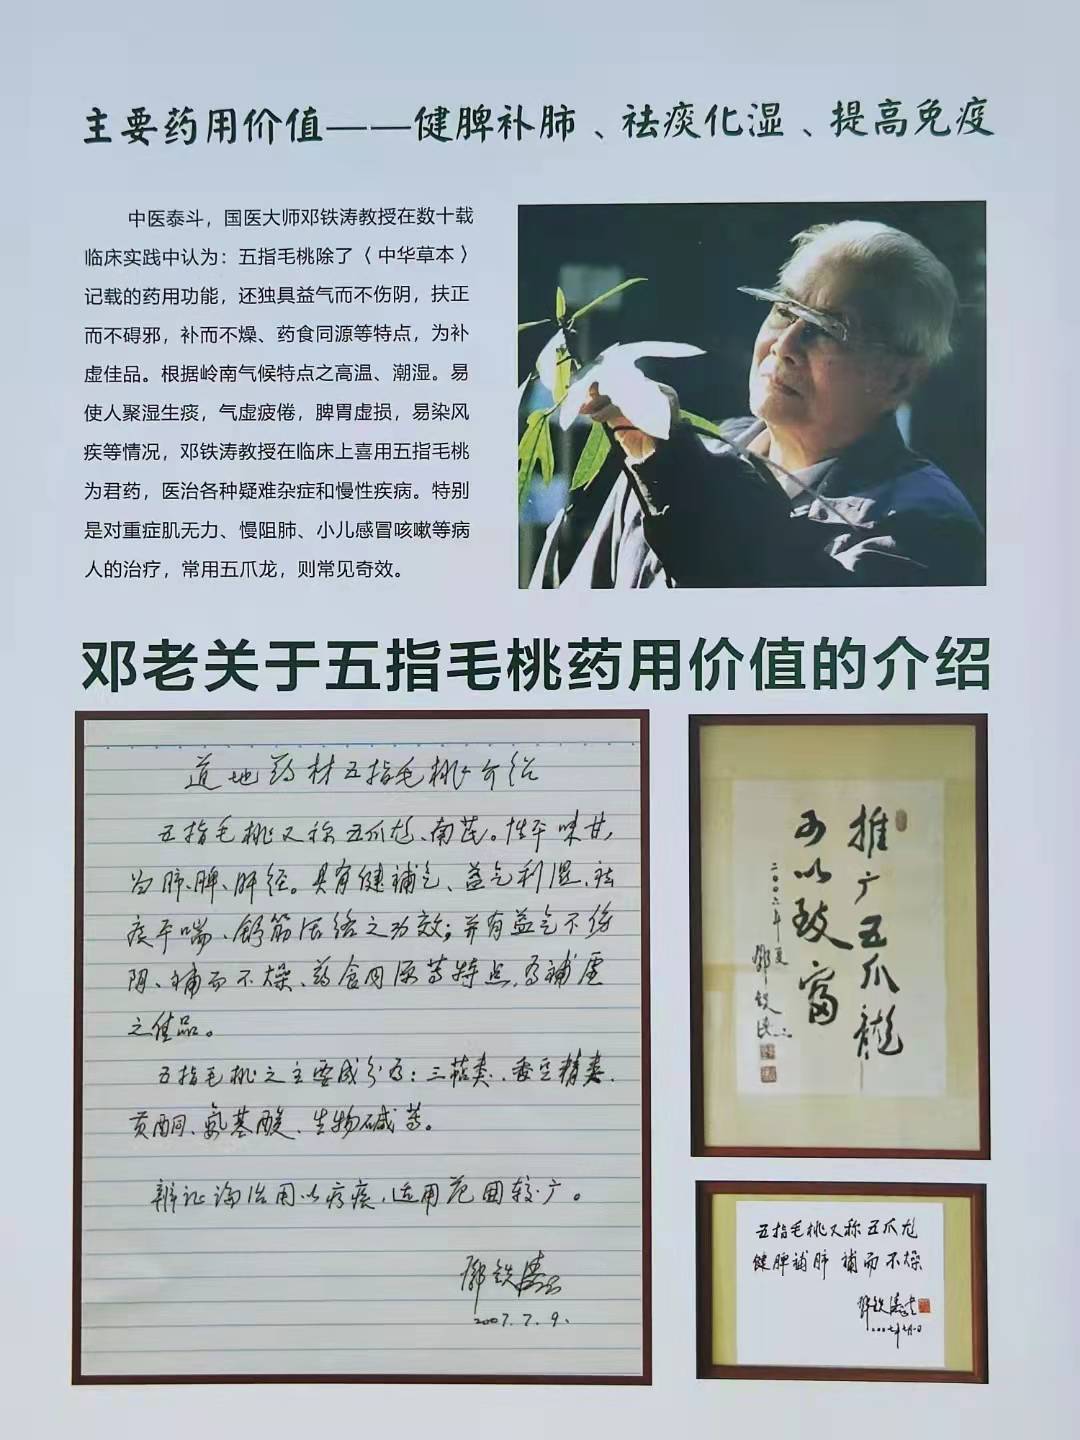 主要药用价值——健脾补肺、祛痰化湿、提高免疫
中医泰斗，国医大师邓铁涛教授在数十载
临床实践中认为：五指毛桃除了〈中华草本〉
记载的药用功能，还独具益气而不伤阴，扶正
而不碍邪，补而不燥、药食同源等特点，为补
虚佳品。根据岭南气候特点之高温、潮湿。易
使人聚湿生痰，气虚疲倦，脾胃虚损，易染风
疾等情况，邓铁涛教授在临床上喜用五指毛桃
为君药，医治各种疑难杂症和慢性疾病。特别
是对重症肌无力、慢阻肺、小儿感冒咳嗽等病
人的治疗，常用五爪龙，则常见奇效。
邓老关于五指毛桃药用价值的介绍
道地药材五指毛桃介绍
五指毛桃又称五爪龙、南芪。性平味甘，
归肺、脾、肝经。具有健補气、益气利湿、祛
痰平喘、舒筋活络之功效；并有益气不伤
阴、補而不燥、药食同源等特点，为補虚
之佳品。
五指毛桃之主要成分为：三萜类、香豆精类、
黄酮、氨基酸、生物碱等。
辨证论治用以疗疾，适用范围较广。
邓铁涛
2007.7.9.
推广五爪龍
可以致富
二〇〇六年夏
邓铁涛
五指毛桃又称五爪龙
健脾補肺 補而不燥
邓铁涛